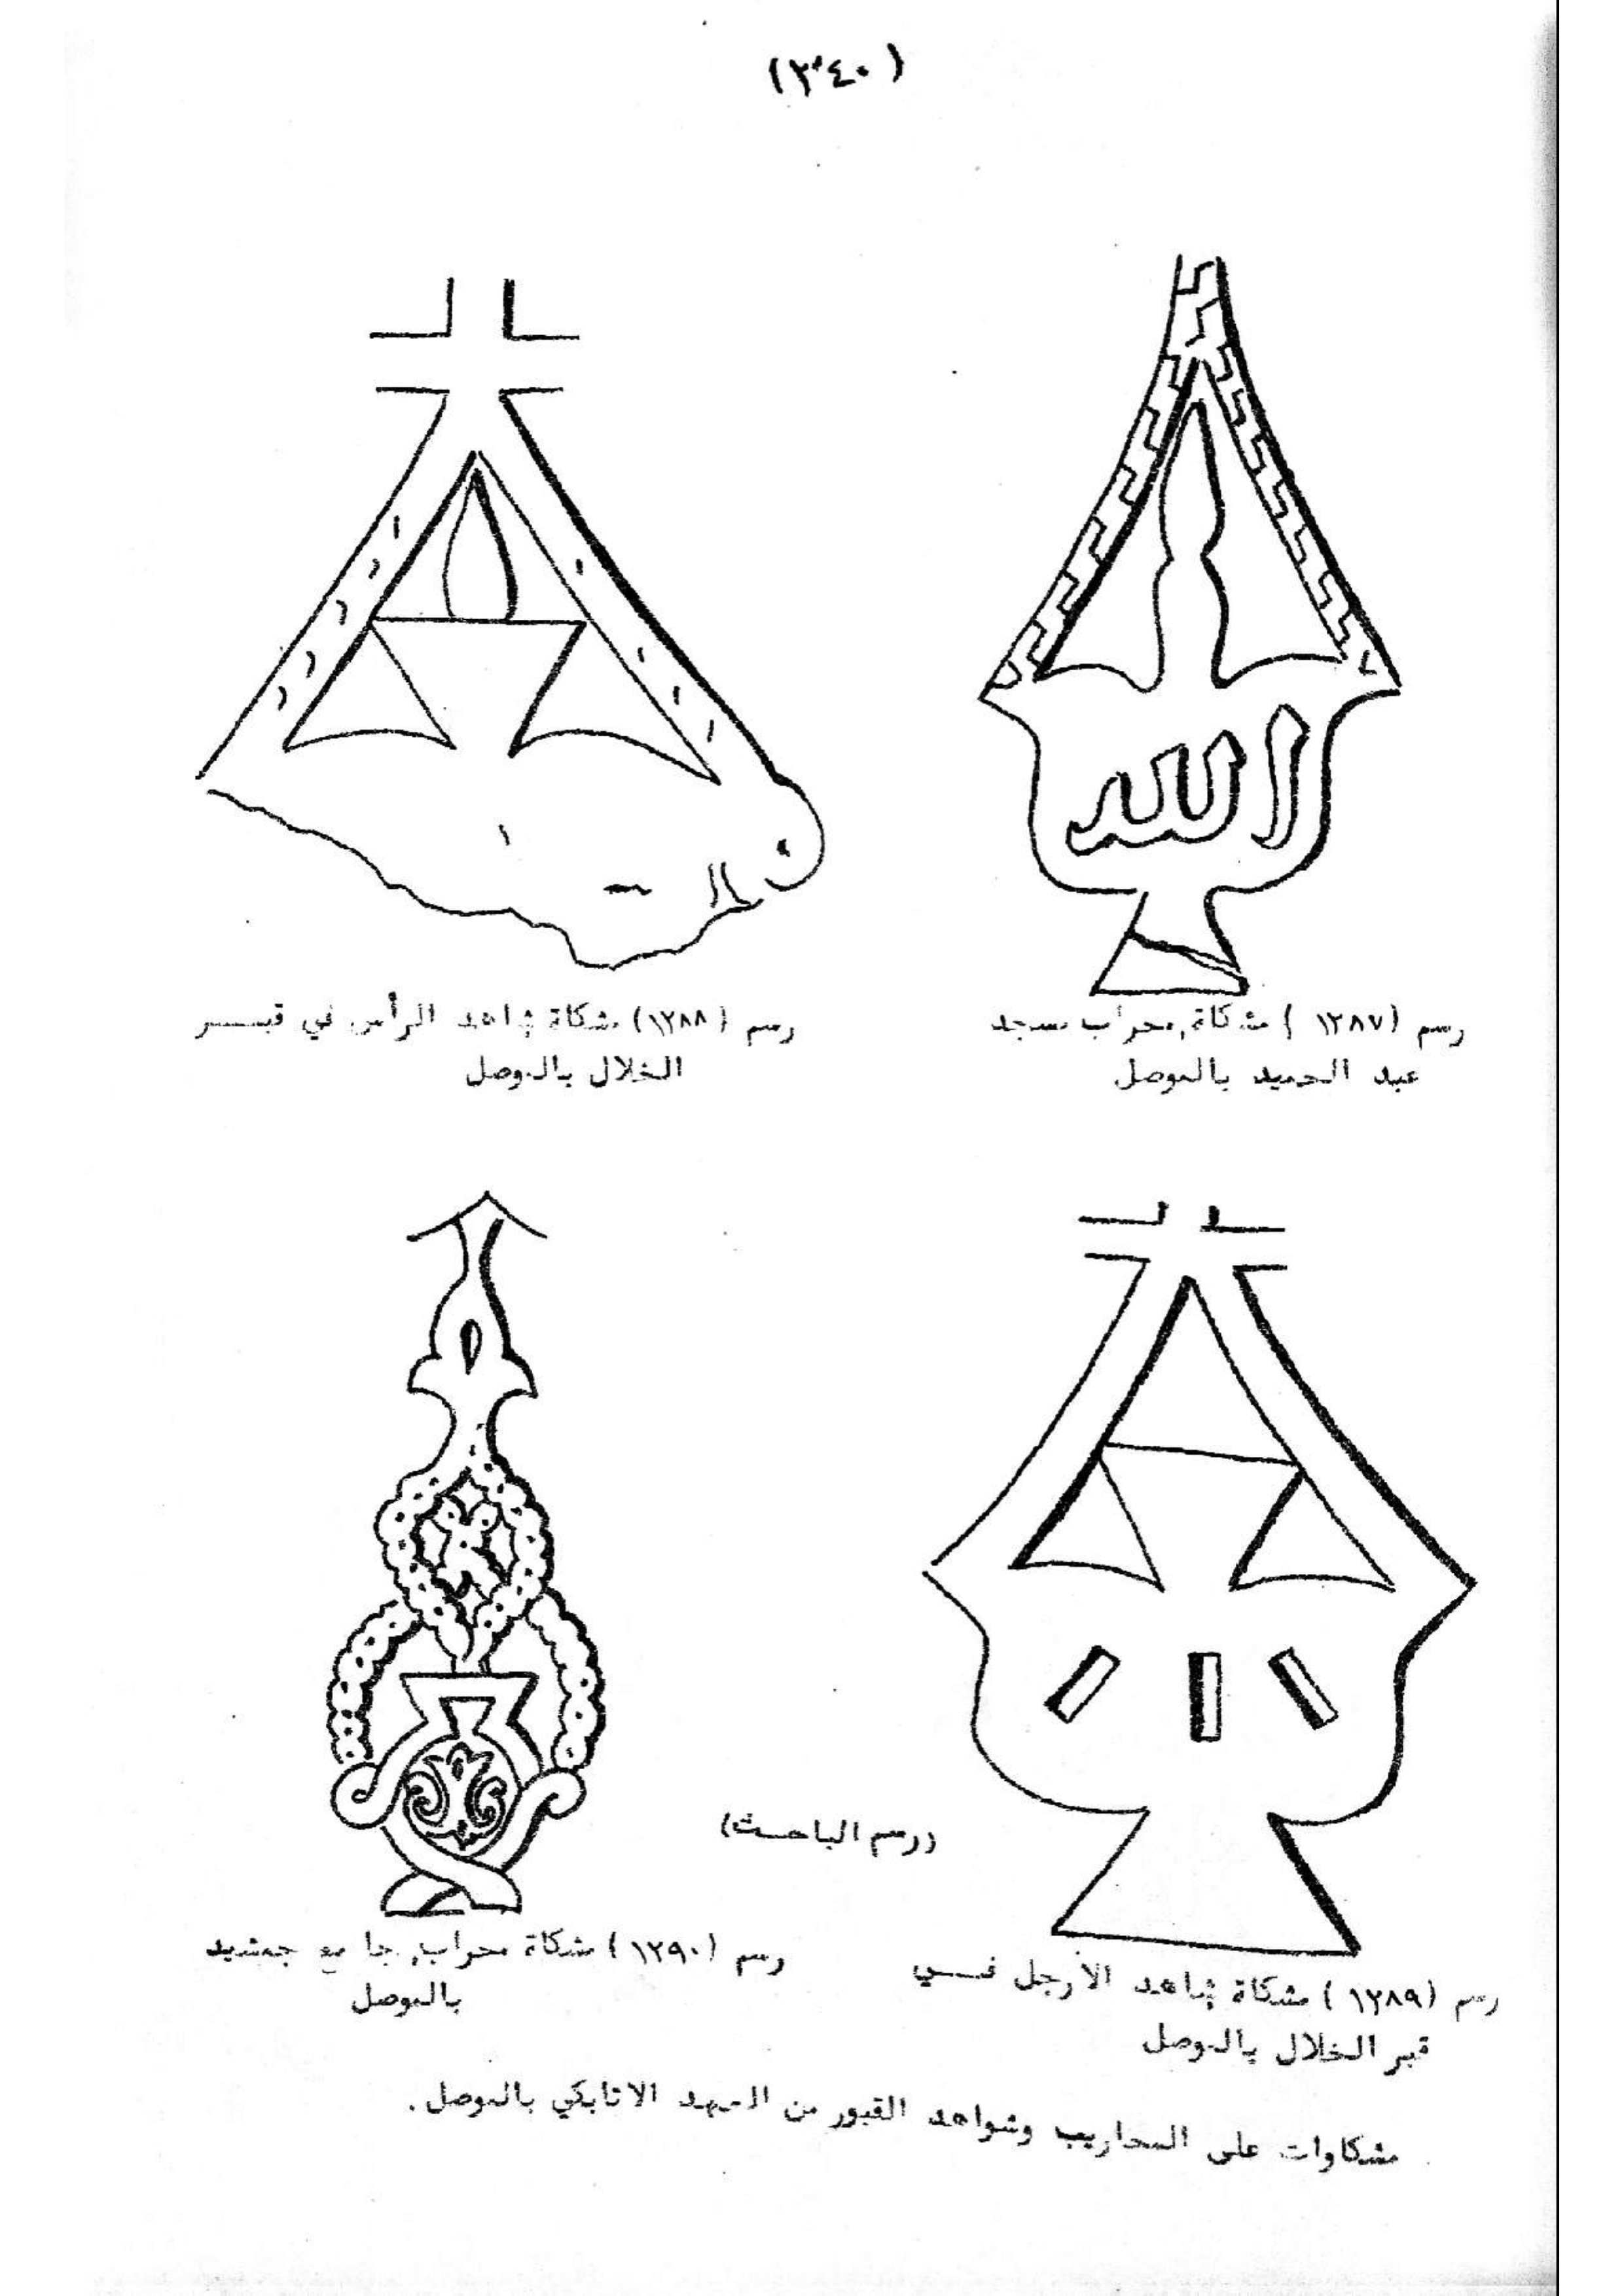 (٣٤٠)
الله
رسم (١٢٨٧) مشكاة محراب مسجد
عبد الحميد بالموصل
رسم (١٢٨٨) مشكاة شاهد الرأس في قبر
الخلال بالموصل
رسم (١٢٨٩) مشكاة شاهد الأرجل في
قبر الخلال بالموصل
(رسم الباحث)
رسم (١٢٩٠) مشكاة محراب جامع جمشيد
بالموصل
مشكاوات على المحاريب وشواهد القبور من العهد الاتابكي بالموصل.